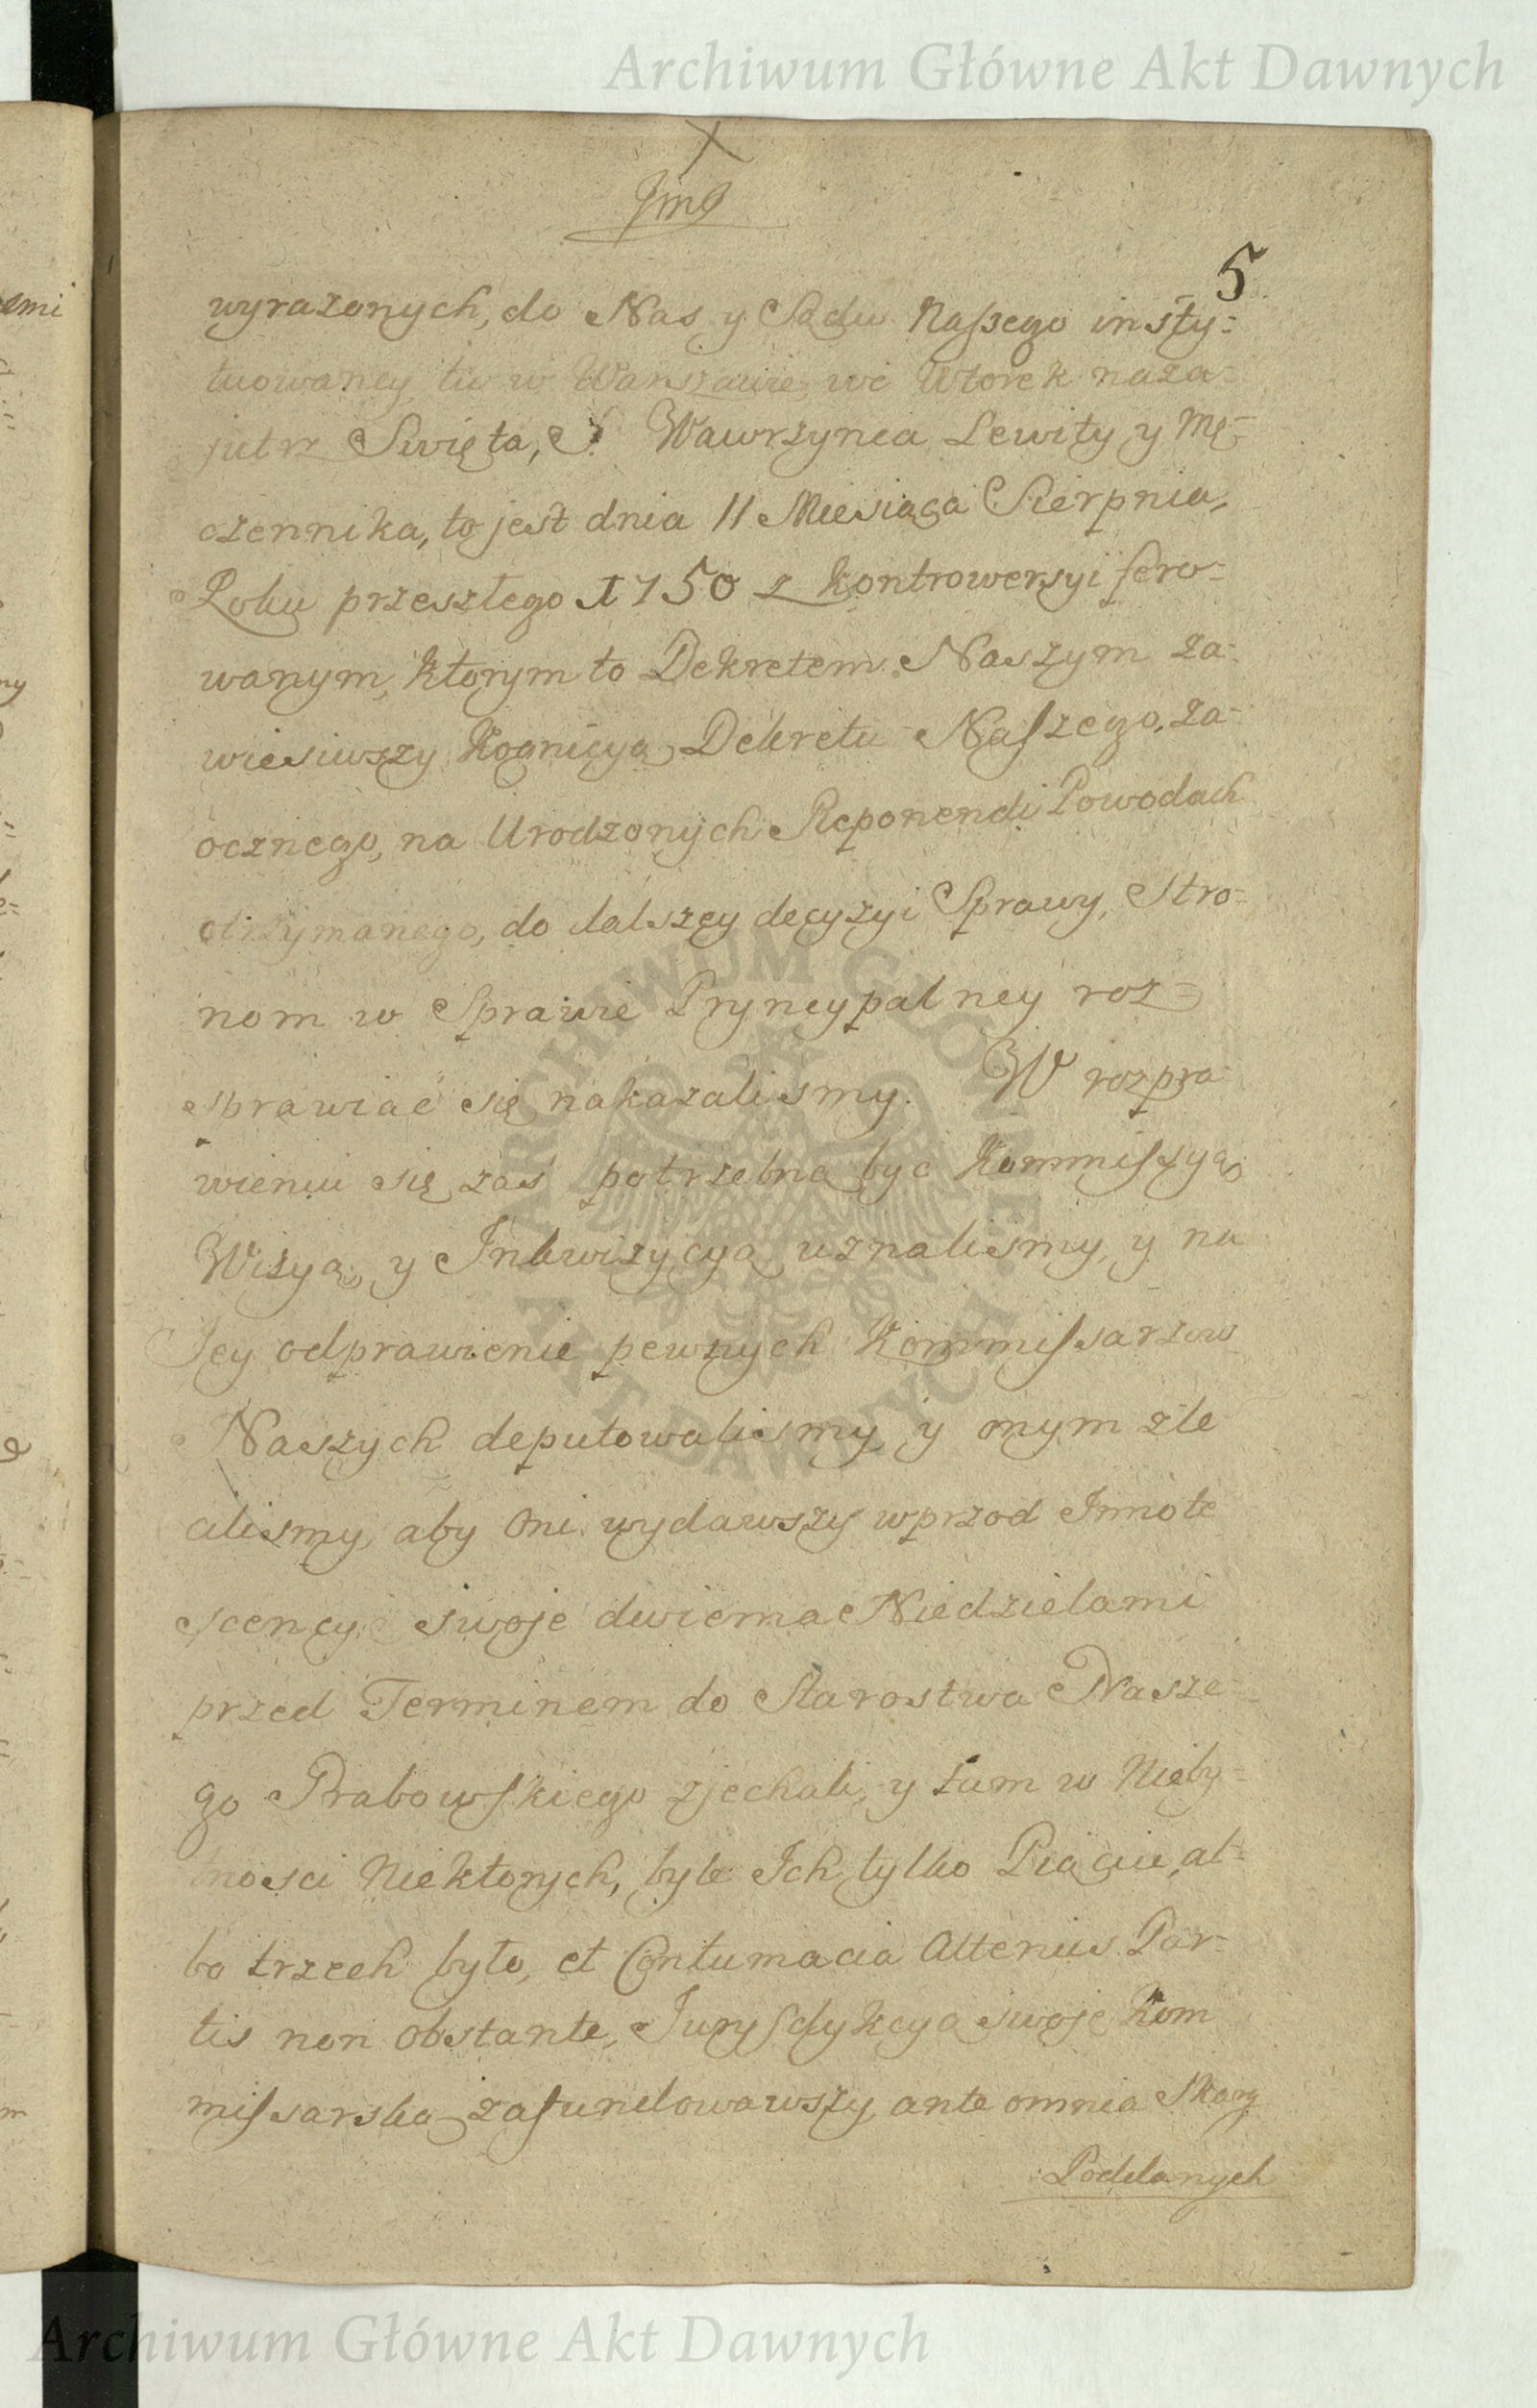 Archiwum Główne Akt Dawnych
5
wyrazonych, do Nas y Sądu Naszego insty-
tuowaney, tu w Warszawie, we Wtorek naza-
jutrz Swięta, S. Wawrzynca Lewity y Mę-
czennika, to jest dnia 11 Miesiąca Sierpnia,
Roku przeszłego 1750 z kontrowersyi fero-
wanym, ktorym to Dekretem Naszym za-
wiesiwszy Kognicyą Dekretu Naszego, za-
ocznego, na Urodzonych Reponendi Powodach
otrzymanego, do dalszey decyzyi Sprawy, Stro-
nom w Sprawie Pryncypalney roz-
sprawiac się nakazalismy. W rozpra-
wieniu się zas potrzebną byc Kommissyą,
Wizyą, y Inkwizycyą uznalismy, y na
Jey odprawienie pewnych Kommissarzow
Naszych deputowalismy, y onym zle
cilismy, aby Oni wydawszy wprzod Innote
scencye swoje dwiema Niedzielami
przed Terminem do Starostwa Nasze-
go zjechali, y tam w Nieby-
tnosci Niektorych, byle Ich tylko Piąciu, al-
bo trzech było, et Contumacia Alterius Par-
tis non obstante, Jurysdykcyą swoję Kom
missarską zafundowawszy, ante omnia Skarg
Poddanych
ARCHIWUM GŁÓWNE AKT DAWNYCH
Archiwum Główne Akt Dawnych